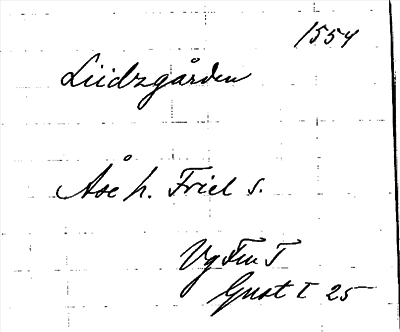 1554
Liidzgården
Åse h. Friel s.
Vg Fru T
Gust I 25